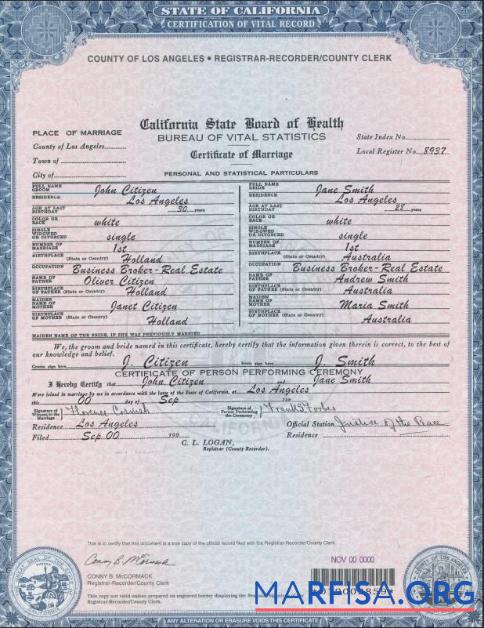 STATE OF CALIFORNIA
CERTIFICATION OF VITAL RECORD
COUNTY OF LOS ANGELES • REGISTRAR-RECORDER/COUNTY CLERK
California State Board of Health
BUREAU OF VITAL STATISTICS
Certificate of Marriage
PLACE OF MARRIAGE
County of Los Angeles
Town of
City of
State Index No
Local Register No 8937
PERSONAL AND STATISTICAL PARTICULARS
FULL NAME GROOM John Citizen
RESIDENCE Los Angeles
AGE AT LAST BIRTHDAY 30 years
COLOR OR RACE white
SINGLE WIDOWED OR DIVORCED single
NUMBER OF MARRIAGE 1st
BIRTHPLACE (State or Country) Holland
OCCUPATION Business Broker-Real Estate
NAME OF FATHER Oliver Citizen
BIRTHPLACE OF FATHER (State or Country) Holland
MAIDEN NAME OF MOTHER Janet Citizen
BIRTHPLACE OF MOTHER (State or Country) Holland
FULL NAME BRIDE Jane Smith
RESIDENCE Los Angeles
AGE AT LAST BIRTHDAY 28 years
COLOR OR RACE white
SINGLE WIDOWED OR DIVORCED single
NUMBER OF MARRIAGE 1st
BIRTHPLACE (State or Country) Australia
OCCUPATION Business Broker-Real Estate
NAME OF FATHER Andrew Smith
BIRTHPLACE OF FATHER (State or Country) Australia
MAIDEN NAME OF MOTHER Maria Smith
BIRTHPLACE OF MOTHER (State or Country) Australia
MAIDEN NAME OF THE BRIDE, IF SHE WAS PREVIOUSLY MARRIED
We, the groom and bride named in this certificate, hereby certify that the information given therein is correct, to the best of
our knowledge and belief.
Groom sign here J. Citizen Bride sign here J. Smith
CERTIFICATE OF PERSON PERFORMING CEREMONY
I Hereby Certify that John Citizen Jane Smith
Were joined in marriage by me in accordance with the laws of the State of California, at Los Angeles
this 00 day of Sep
Signature of Witness to Marriage
Signature of Person Performing the Ceremony
Residence Los Angeles
Official Station Justice of the Peace
Filed Sep 00 190
Residence
C. L. LOGAN,
Registrar (County Recorder).
This is to certify that this document is a true copy of the official record filed with the Registrar-Recorder/County Clerk.
Conny B. McCormack
CONNY B. McCORMACK
Registrar-Recorder/County Clerk
NOV 00 0000
This copy not valid unless prepared on engraved border displaying the
Registrar-Recorder/County Clerk.
MARFISA.ORG
ANY ALTERATION OR ERASURE VOIDS THIS CERTIFICATE